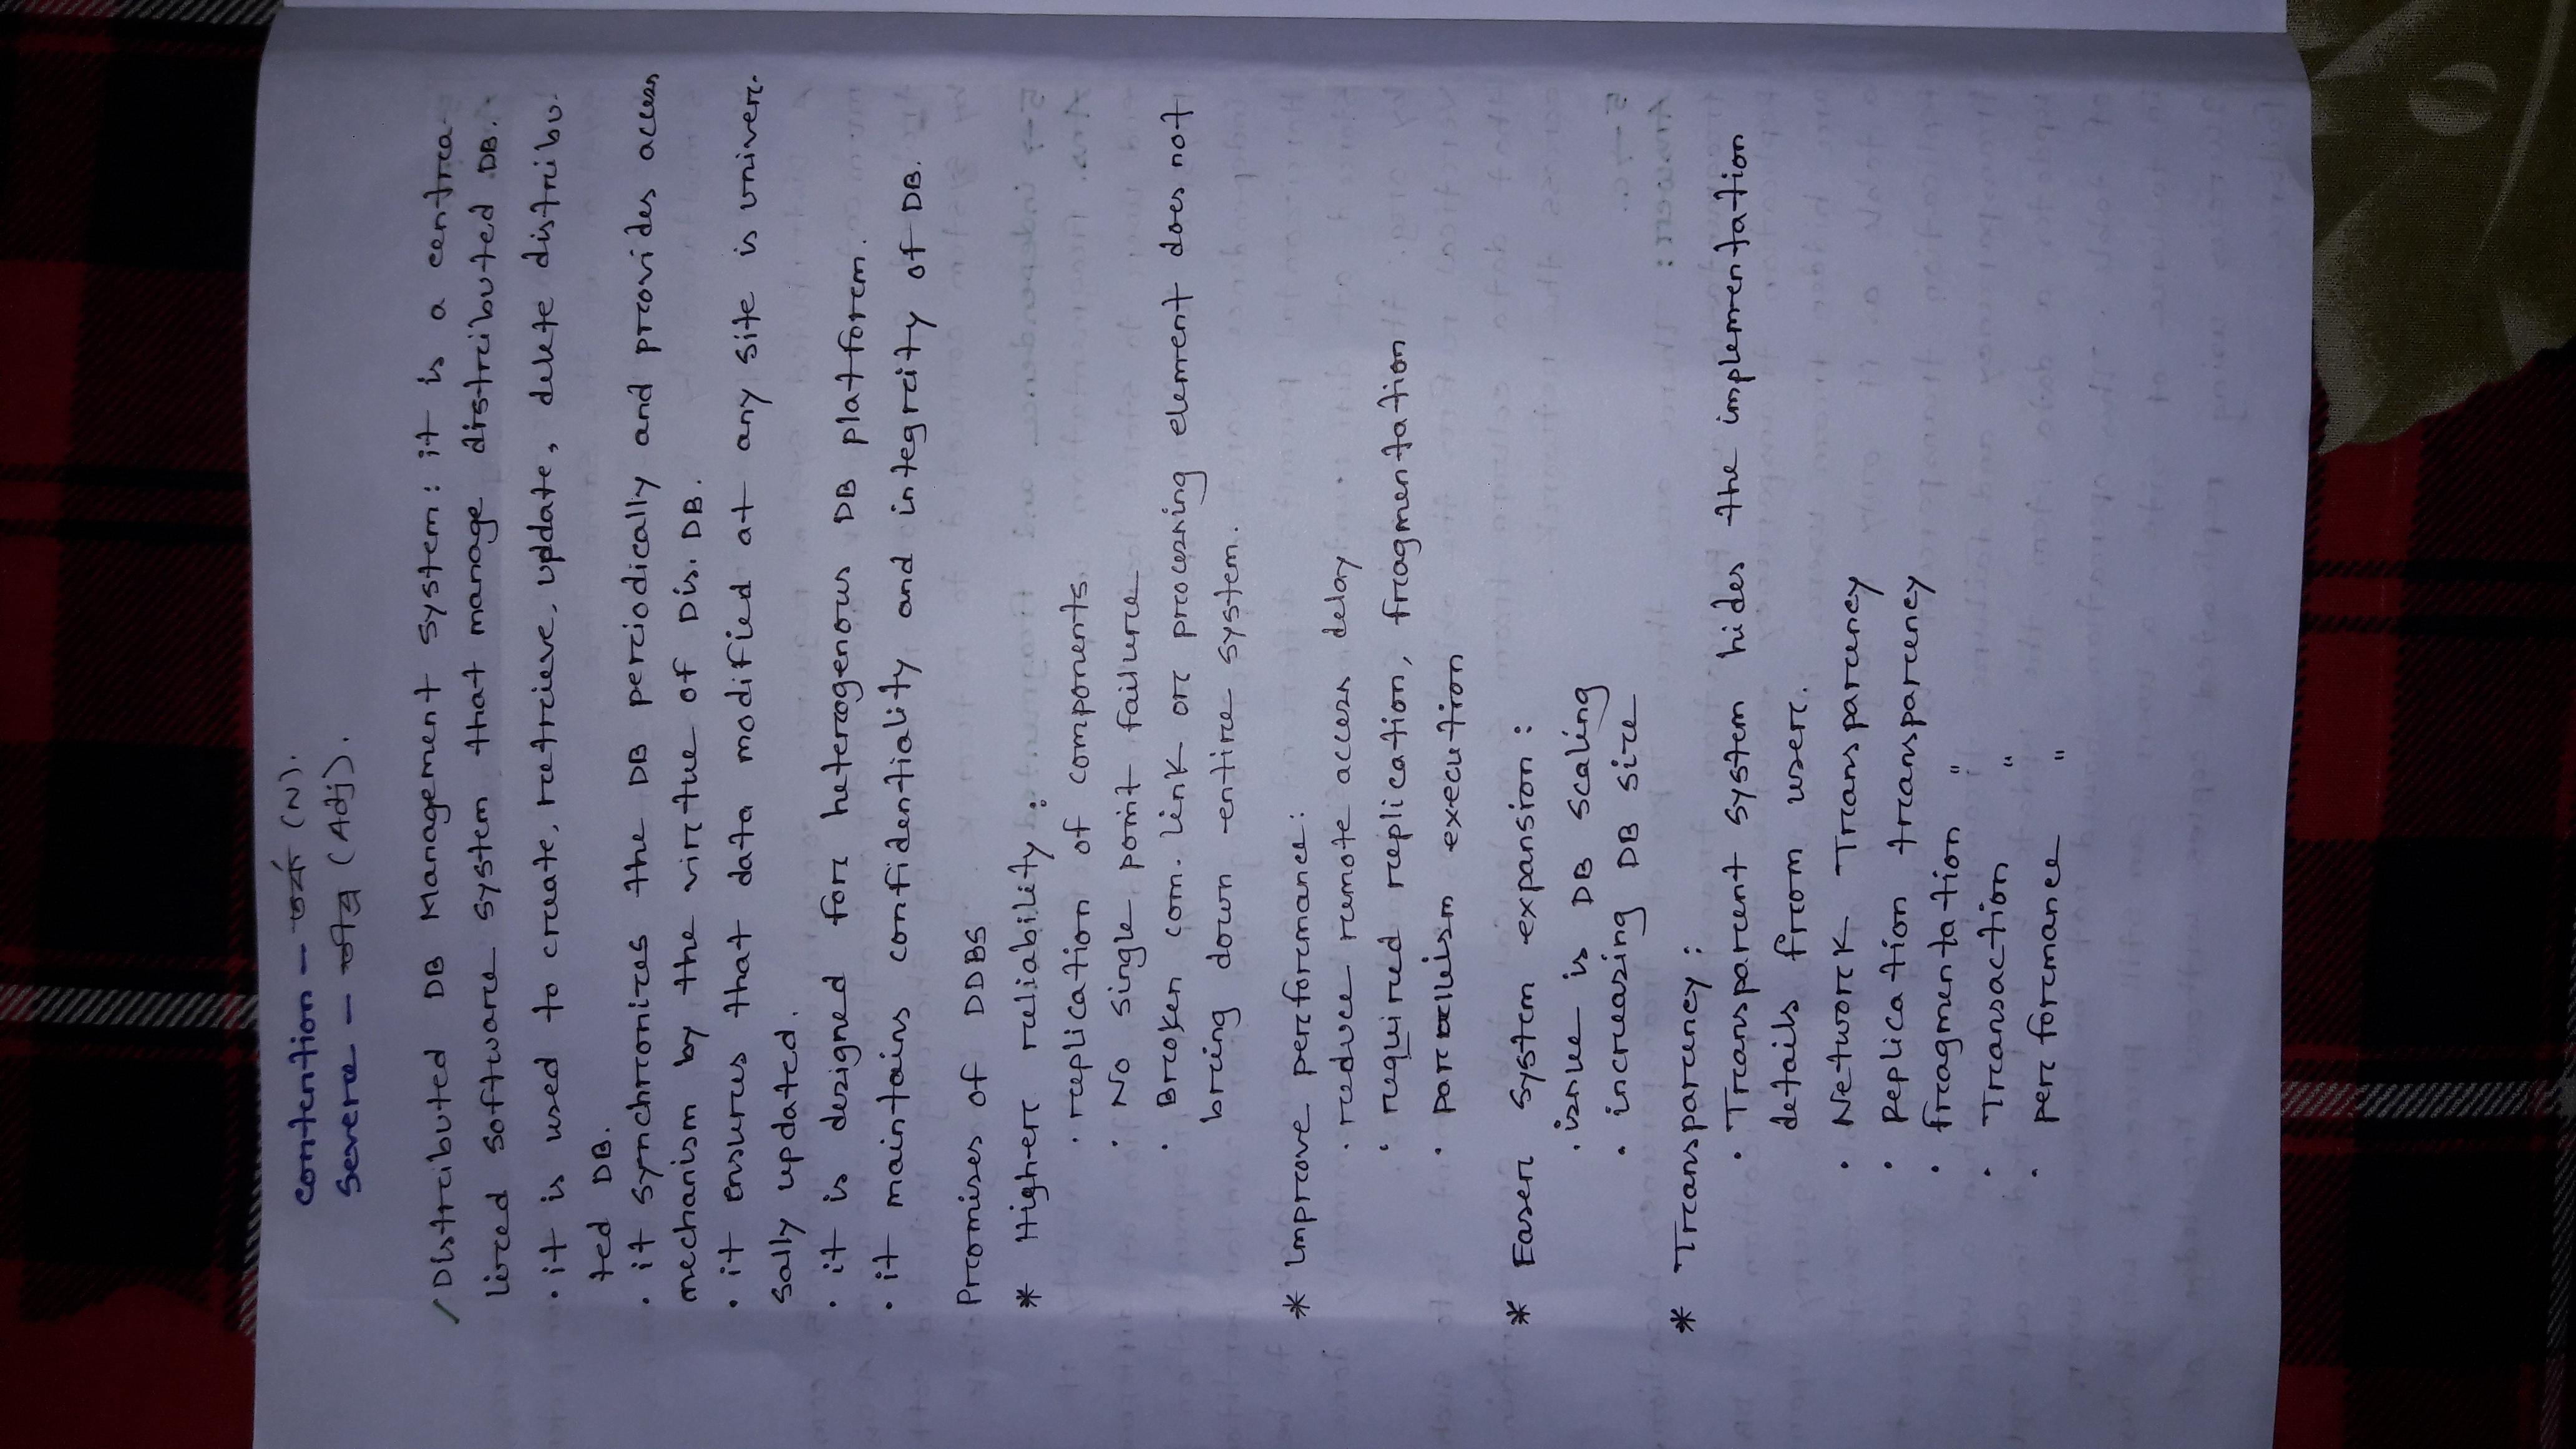 contention - তর্ক (N).
severe - তীব্র (Adj).
Distributed DB Management system: it is a centra-
lized software system that manage distributed DB.
• it is used to create, retrieve, update, delete distribu-
ted DB.
• it synchronizes the DB periodically and provides access
mechanism by the virtue of Dis. DB.
• it ensures that data modified at any site is univer-
sally updated.
• it is designed for heterogenous DB platform.
• it maintains confidentiality and integrity of DB.
Promises of DDBS
* Higher reliability:
• replication of components.
• No single point failure
• Broken com. link or processing element does not
bring down entire system.
* improve performance:
• reduce remote access delay
• required replication, fragmentation
• parallelism execution
* Easer system expansion:
• issue is DB scaling
• increasing DB size
* Transparency:
• Transparent system hides the implementation
details from user.
• Network Transparency
• Replication transparency
• fragmentation "
• Transaction "
• performance "